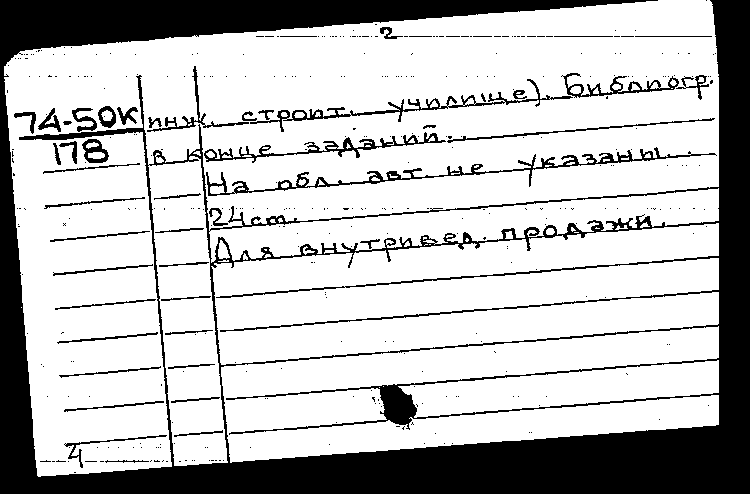 2
74-50К инж. строит. училище). Библиогр.
178 в конце заданий.
На обл. авт. не указаны.
24 см.
Для внутривед. продажи.
4